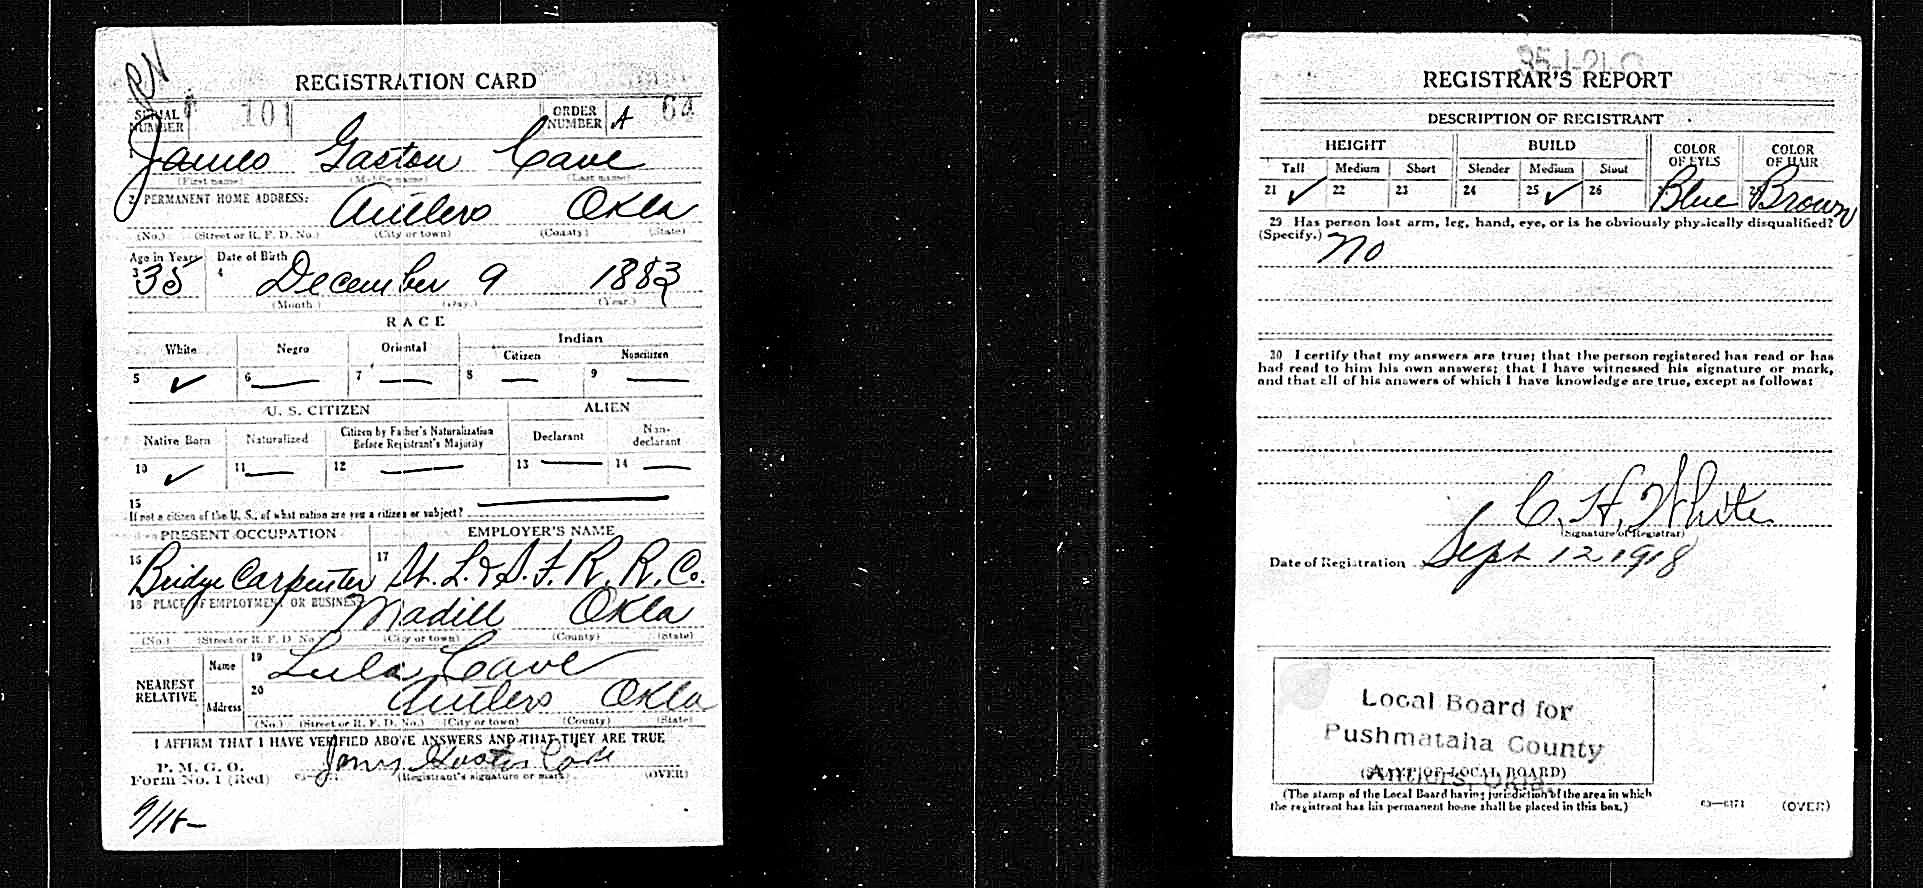 REGISTRATION CARD
SERIAL NUMBER 101 ORDER NUMBER A 64
1 James Gaston Cave
(First name) (Middle name) (Last name)
2 PERMANENT HOME ADDRESS: Antlers Okla
(No.) (Street or R. F. D. No.) (City or town) (County) (State)
Age in Years Date of Birth
3 35 4 December 9 1883
(Month.) (Day.) (Year.)
RACE
White Negro Oriental Indian
Citizen Noncitizen
5 ✓ 6 — 7 — 8 — 9 —
U. S. CITIZEN ALIEN
Native Born Naturalized Citizen by Father's Naturalization Before Registrant's Majority Declarant Non-declarant
10 ✓ 11 — 12 — 13 — 14 —
15
If not a citizen of the U. S., of what nation are you a citizen or subject? —
PRESENT OCCUPATION EMPLOYER'S NAME
16 Bridge Carpenter 17 St. L. & S. F. R. R. Co.
18 PLACE OF EMPLOYMENT OR BUSINESS Madill Okla
(No.) (Street or R. F. D. No.) (City or town) (County) (State)
NEAREST RELATIVE Name 19 Lula Cave
Address 20 Antlers Okla
(No.) (Street or R. F. D. No.) (City or town) (County) (State)
I AFFIRM THAT I HAVE VERIFIED ABOVE ANSWERS AND THAT THEY ARE TRUE
P. M. G. O.
Form No. 1 (Red) (Registrant's signature or mark) (OVER)
REGISTRAR'S REPORT
DESCRIPTION OF REGISTRANT
HEIGHT BUILD COLOR OF EYES COLOR OF HAIR
Tall Medium Short Slender Medium Stout
21 ✓ 22 23 24 25 ✓ 26 Blue Brown
29 Has person lost arm, leg, hand, eye, or is he obviously physically disqualified?
(Specify.) No
30 I certify that my answers are true; that the person registered has read or has
had read to him his own answers; that I have witnessed his signature or mark,
and that all of his answers of which I have knowledge are true, except as follows:
C. H. White
(Signature of Registrar)
Date of Registration Sept 12 1918
Local Board for
Pushmataha County
Antlers, Okla.
(STAMP OF LOCAL BOARD)
(The stamp of the Local Board having jurisdiction of the area in which
the registrant has his permanent home shall be placed in this box.)
(OVER)